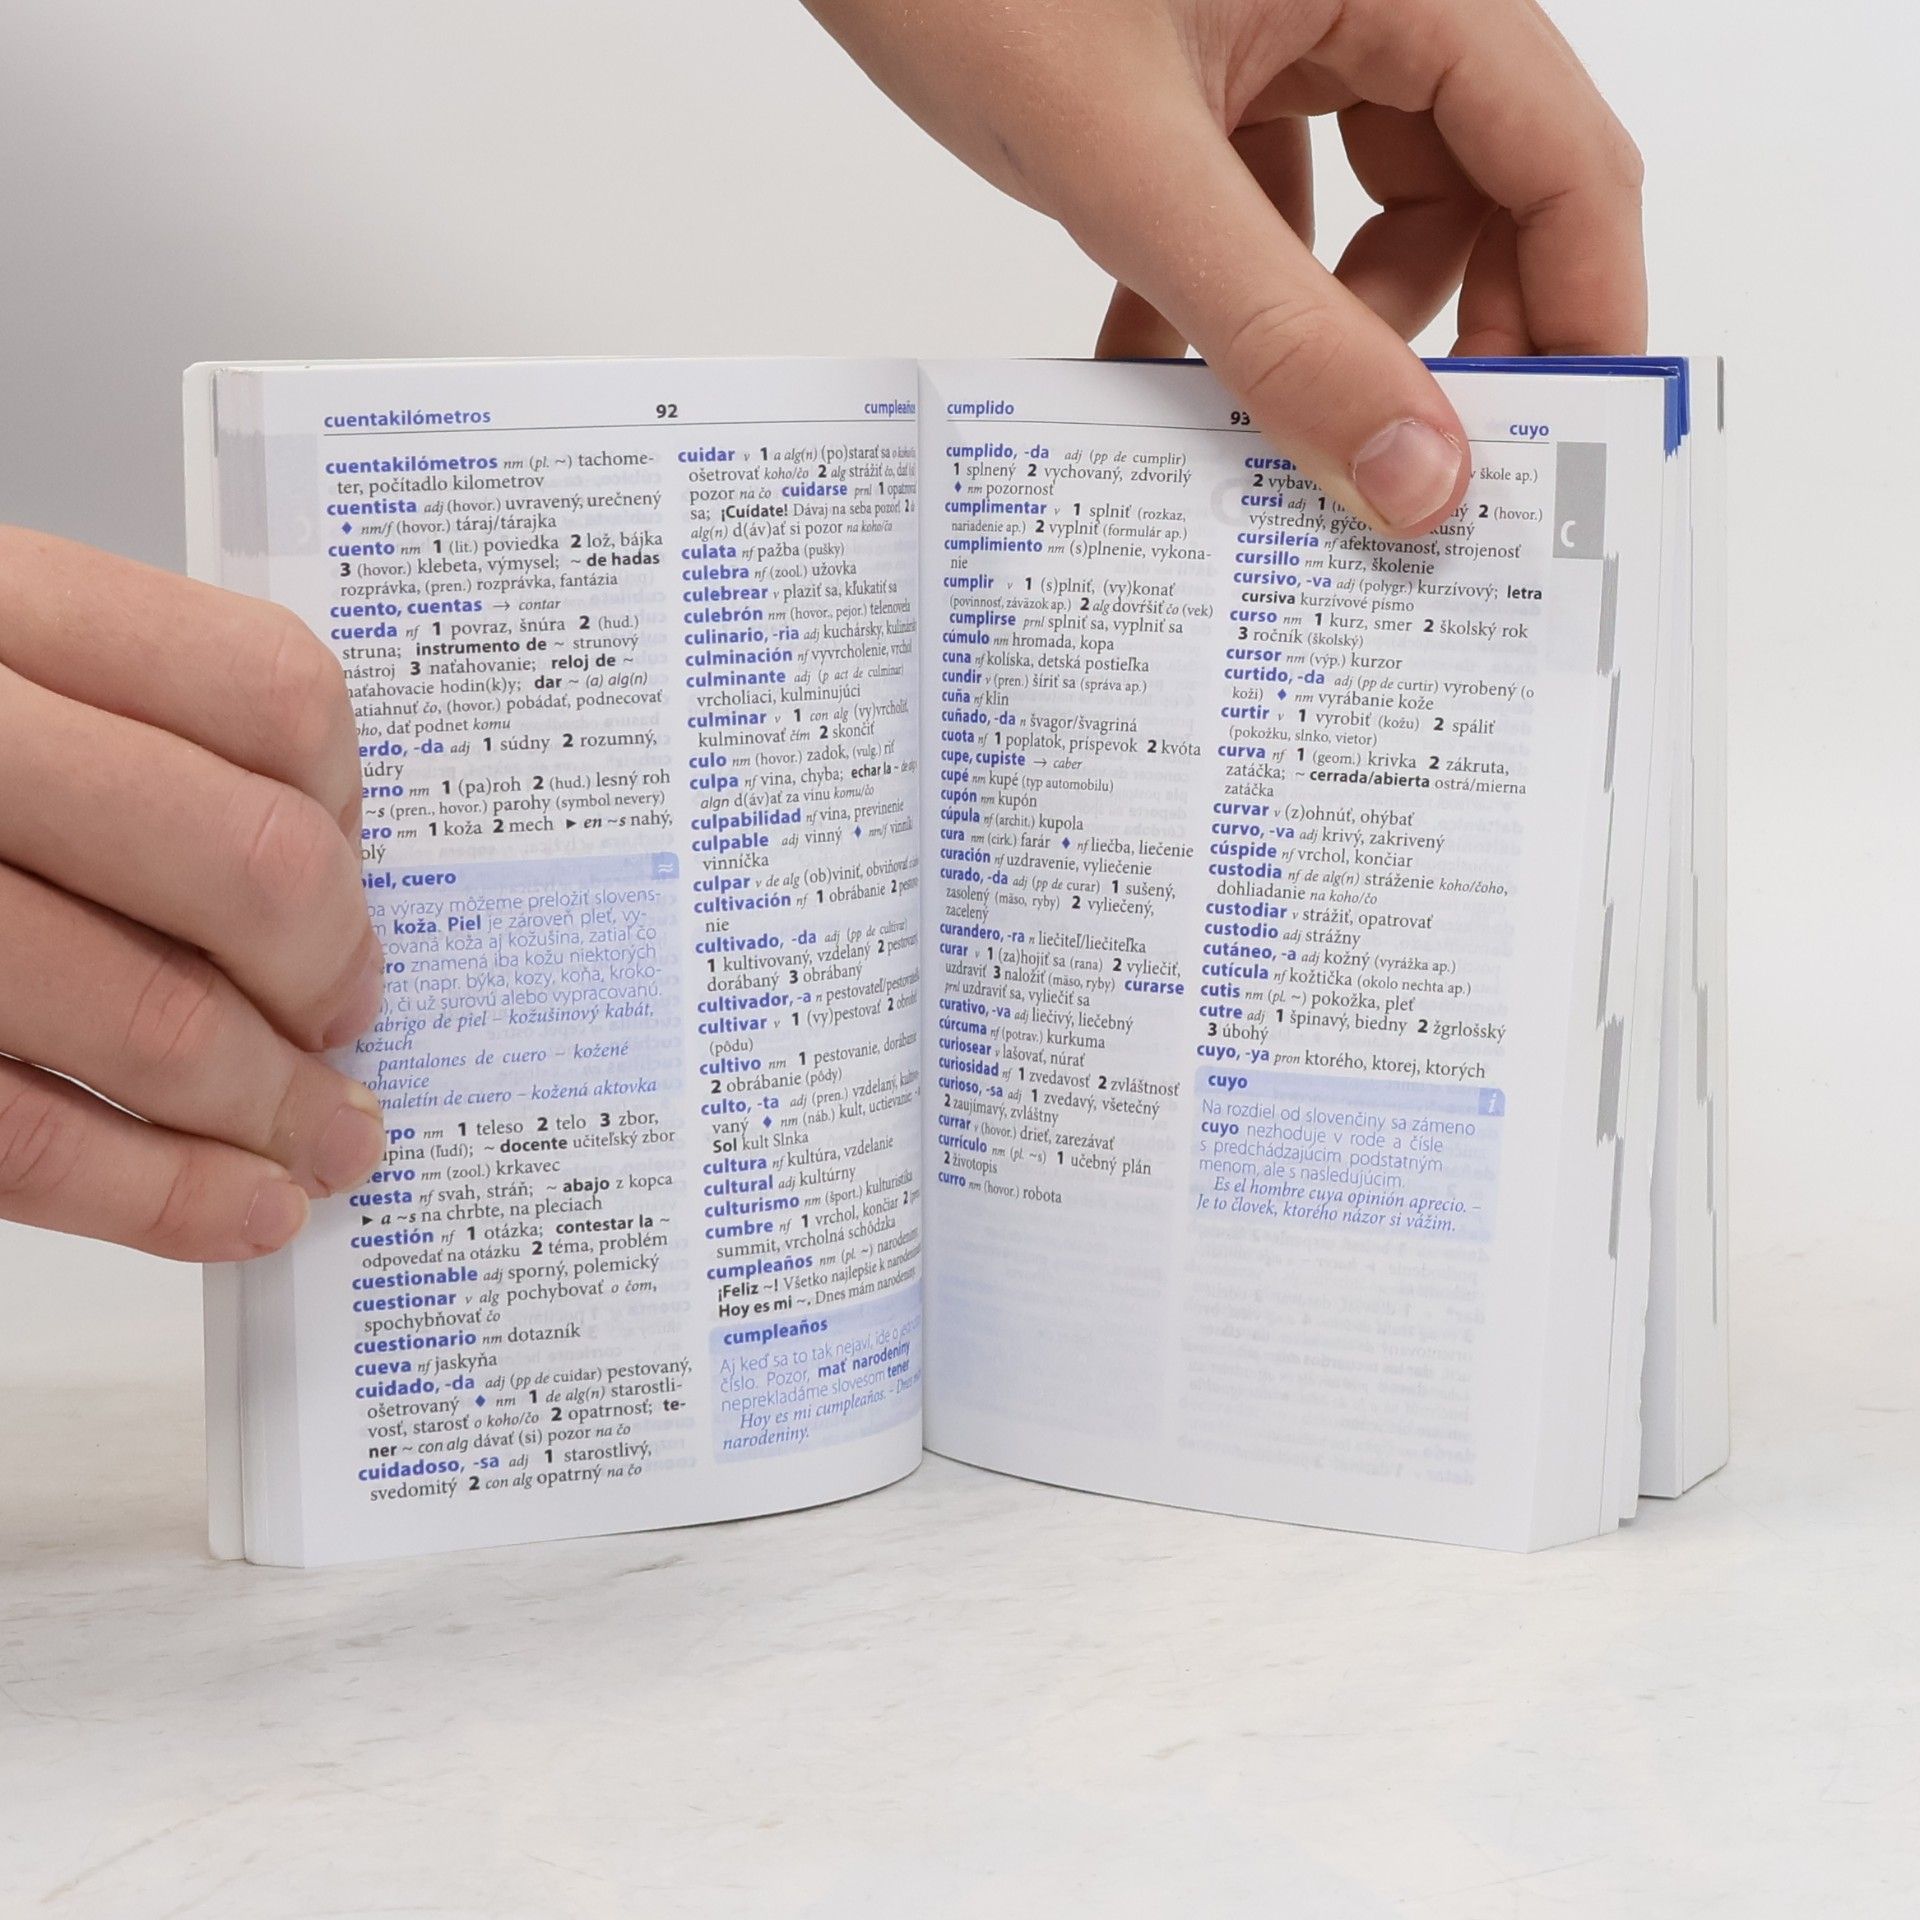 cuentakilómetros 92 cumpleaños
cuentakilómetros nm (pl. ~) tachome-
ter, počítadlo kilometrov
cuentista adj (hovor.) uvravený, urečnený
♦ nm/f (hovor.) táraj/tárajka
cuento nm 1 (lit.) poviedka 2 lož, bájka
3 (hovor.) klebeta, výmysel; ~ de hadas
rozprávka, (pren.) rozprávka, fantázia
cuento, cuentas → contar
cuerda nf 1 povraz, šnúra 2 (hud.)
struna; instrumento de ~ strunový
nástroj 3 naťahovanie; reloj de ~
naťahovacie hodin(k)y; dar ~ (a) alg(n)
atiahnuť čo, (hovor.) pobádať, podnecovať
oho, dať podnet komu
erdo, -da adj 1 súdny 2 rozumný,
údry
erno nm 1 (pa)roh 2 (hud.) lesný roh
~s (pren., hovor.) parohy (symbol nevery)
ero nm 1 koža 2 mech ▶ en ~s nahý,
olý
piel, cuero
ba výrazy môžeme preložiť slovens-
m koža. Piel je zároveň pleť, vy-
covaná koža aj kožušina, zatiaľ čo
ro znamená iba kožu niektorých
erat (napr. býka, kozy, koňa, kroko-
), či už surovú alebo vypracovanú.
abrigo de piel – kožušinový kabát,
kožuch
pantalones de cuero – kožené
ohavice
maletín de cuero – kožená aktovka
rpo nm 1 teleso 2 telo 3 zbor,
upina (ľudí); ~ docente učiteľský zbor
ervo nm (zool.) krkavec
cuesta nf svah, stráň; ~ abajo z kopca
▶ a ~s na chrbte, na pleciach
cuestión nf 1 otázka; contestar la ~
odpovedať na otázku 2 téma, problém
cuestionable adj sporný, polemický
cuestionar v alg pochybovať o čom,
spochybňovať čo
cuestionario nm dotazník
cueva nf jaskyňa
cuidado, -da adj (pp de cuidar) pestovaný,
ošetrovaný ♦ nm 1 de alg(n) starostli-
vosť, starosť o koho/čo 2 opatrnosť; te-
ner ~ con alg dávať (si) pozor na čo
cuidadoso, -sa adj 1 starostlivý,
svedomitý 2 con alg opatrný na čo
cuidar v 1 a alg(n) (po)starať sa o koho/čo,
ošetrovať koho/čo 2 alg strážiť čo, dať (si)
pozor na čo cuidarse prnl 1 opatrovať
sa; ¡Cuídate! Dávaj na seba pozor! 2
alg(n) d(áv)ať si pozor na koho/čo
culata nf pažba (pušky)
culebra nf (zool.) užovka
culebrear v plaziť sa, kľukatiť sa
culebrón nm (hovor., pejor.) telenovela
culinario, -ria adj kuchársky, kulinársky
culminación nf vyvrcholenie, vrchol
culminante adj (p act de culminar)
vrcholiaci, kulminujúci
culminar v 1 con alg (vy)vrcholiť,
kulminovať čím 2 skončiť
culo nm (hovor.) zadok, (vulg.) riť
culpa nf vina, chyba; echar la ~
algn d(áv)ať za vinu komu/čo
culpabilidad nf vina, previnenie
culpable adj vinný ♦ nm/f vinník
vinníčka
culpar v de alg (ob)viniť, obviňovať
cultivación nf 1 obrábanie 2 pestova-
nie
cultivado, -da adj (pp de cultivar)
1 kultivovaný, vzdelaný 2 pestovaný,
dorábaný 3 obrábaný
cultivador, -a n pestovateľ/pestovateľka
cultivar v 1 (vy)pestovať 2 obrobiť
(pôdu)
cultivo nm 1 pestovanie, dorábanie
2 obrábanie (pôdy)
culto, -ta adj (pren.) vzdelaný, kultivo-
vaný ♦ nm (náb.) kult, uctievanie;
Sol kult Slnka
cultura nf kultúra, vzdelanie
cultural adj kultúrny
culturismo nm (šport.) kulturistika
cumbre nf 1 vrchol, končiar 2
summit, vrcholná schôdzka
cumpleaños nm (pl. ~) narodeniny;
¡Feliz ~! Všetko najlepšie k narodeninám!
Hoy es mi ~. Dnes mám narodeniny.
cumpleaños
Aj keď sa to tak nejaví, ide o jednotné
číslo. Pozor, mať narodeniny
neprekladáme slovesom tener
Hoy es mi cumpleaños. – Dnes mám
narodeniny.
cumplido 93 cuyo
cumplido, -da adj (pp de cumplir)
1 splnený 2 vychovaný, zdvorilý
♦ nm pozornosť
cumplimentar v 1 splniť (rozkaz,
nariadenie ap.) 2 vyplniť (formulár ap.)
cumplimiento nm (s)plnenie, vykona-
nie
cumplir v 1 (s)plniť, (vy)konať
(povinnosť, záväzok ap.) 2 alg dovŕšiť čo (vek)
cumplirse prnl splniť sa, vyplniť sa
cúmulo nm hromada, kopa
cuna nf kolíska, detská postieľka
cundir v (pren.) šíriť sa (správa ap.)
cuña nf klin
cuñado, -da n švagor/švagriná
cuota nf 1 poplatok, príspevok 2 kvóta
cupe, cupiste → caber
cupé nm kupé (typ automobilu)
cupón nm kupón
cúpula nf (archit.) kupola
cura nm (cirk.) farár ♦ nf liečba, liečenie
curación nf uzdravenie, vyliečenie
curado, -da adj (pp de curar) 1 sušený,
zasolený (mäso, ryby) 2 vyliečený,
zacelený
curandero, -ra n liečiteľ/liečiteľka
curar v 1 (za)hojiť sa (rana) 2 vyliečiť,
uzdraviť 3 naložiť (mäso, ryby) curarse
prnl uzdraviť sa, vyliečiť sa
curativo, -va adj liečivý, liečebný
cúrcuma nf (potrav.) kurkuma
curiosear v lašovať, núrať
curiosidad nf 1 zvedavosť 2 zvláštnosť
curioso, -sa adj 1 zvedavý, všetečný
2 zaujímavý, zvláštny
currar v (hovor.) drieť, zarezávať
currículo nm (pl. ~s) 1 učebný plán
2 životopis
curro nm (hovor.) robota
cursar v škole ap.)
2 vybavi
cursi adj 1 ný 2 (hovor.)
výstredný, gýčov kusný
cursilería nf afektovanosť, strojenosť
cursillo nm kurz, školenie
cursivo, -va adj (polygr.) kurzívový; letra
cursiva kurzívové písmo
curso nm 1 kurz, smer 2 školský rok
3 ročník (školský)
cursor nm (výp.) kurzor
curtido, -da adj (pp de curtir) vyrobený (o
koži) ♦ nm vyrábanie kože
curtir v 1 vyrobiť (kožu) 2 spáliť
(pokožku, slnko, vietor)
curva nf 1 (geom.) krivka 2 zákruta,
zatáčka; ~ cerrada/abierta ostrá/mierna
zatáčka
curvar v (z)ohnúť, ohýbať
curvo, -va adj krivý, zakrivený
cúspide nf vrchol, končiar
custodia nf de alg(n) stráženie koho/čoho,
dohliadanie na koho/čo
custodiar v strážiť, opatrovať
custodio adj strážny
cutáneo, -a adj kožný (vyrážka ap.)
cutícula nf kožtička (okolo nechta ap.)
cutis nm (pl. ~) pokožka, pleť
cutre adj 1 špinavý, biedny 2 žgrlošský
3 úbohý
cuyo, -ya pron ktorého, ktorej, ktorých
cuyo i
Na rozdiel od slovenčiny sa zámeno
cuyo nezhoduje v rode a čísle
s predchádzajúcim podstatným
menom, ale s nasledujúcim.
Es el hombre cuya opinión aprecio. –
Je to človek, ktorého názor si vážim.
C